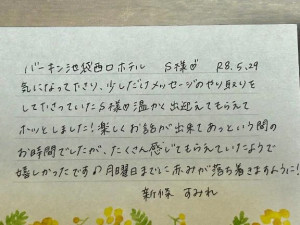 バーキン池袋西口ホテル S様♡ R8.5.29
気になって下さり、少しだけメッセージのやり取りを
して下さっていたS様♡温かく出迎えてもらえて
ホッとしました!楽しくお話が出来てあっという間の
お時間でしたが、たくさん感じてもらえていたようで
嬉しかったです♪月曜日までに赤みが落ち着きますように!
新條 すみれ